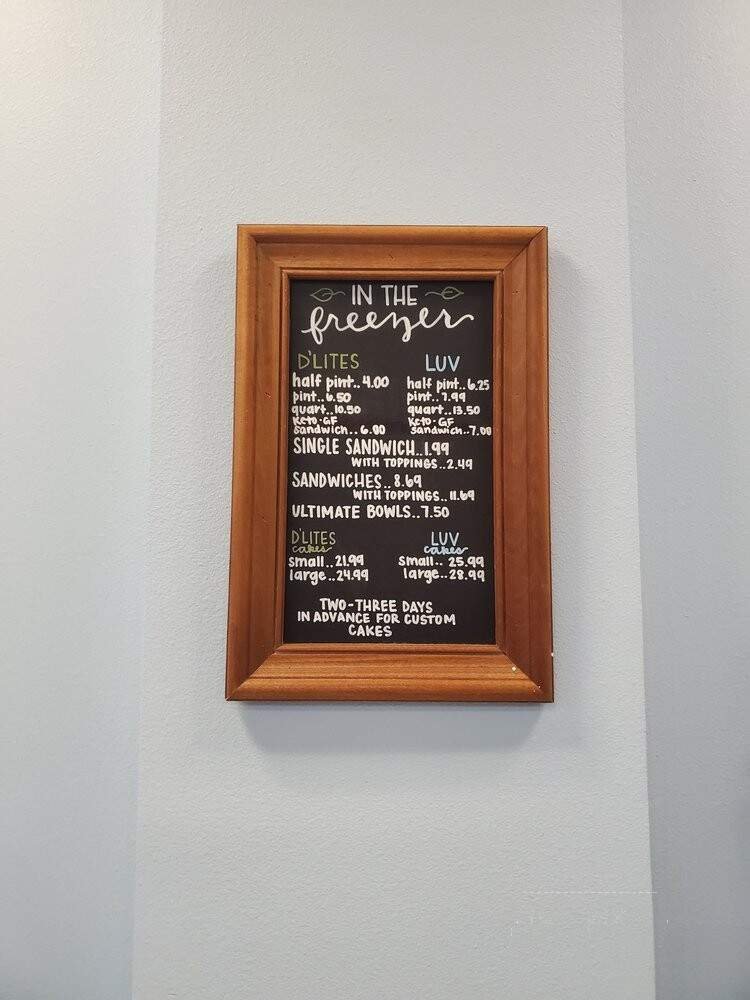 IN THE
freezer
D'LITES LUV
half pint..4.00 half pint..6.25
pint..6.50 pint..7.99
quart..10.50 quart..13.50
KETO·GF KETO·GF
sandwich..6.00 sandwich..7.00
SINGLE SANDWICH..1.99
WITH TOPPINGS..2.49
SANDWICHES..8.69
WITH TOPPINGS..11.69
ULTIMATE BOWLS..7.50
D'LITES LUV
cakes cakes
small..21.99 small..25.99
large..24.99 large..28.99
TWO-THREE DAYS
IN ADVANCE FOR CUSTOM
CAKES